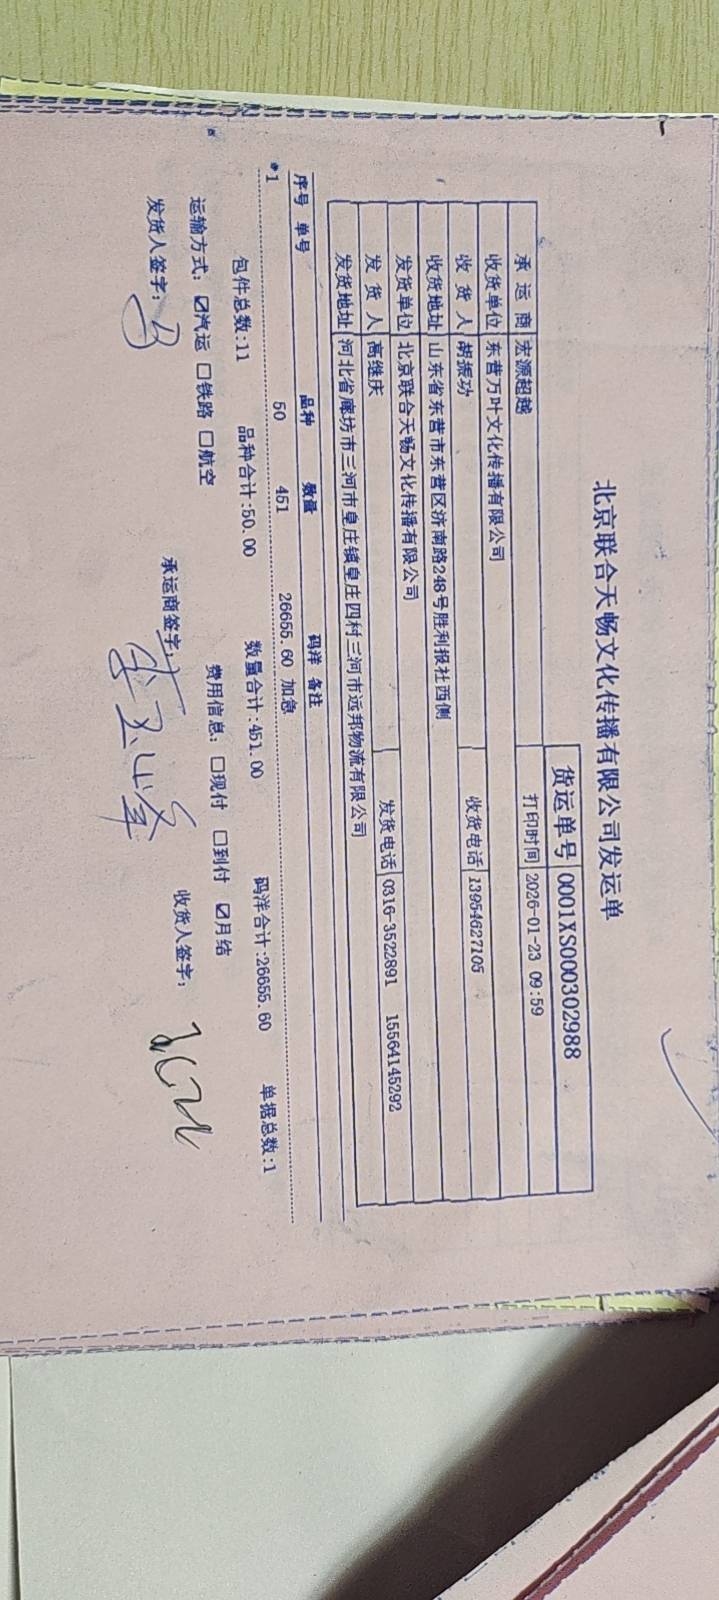 北京联合天畅文化传播有限公司发运单
货运单号 0001XS000302988
承运商 宏源超越 打印时间 2026-01-23 09:59
收货单位 东营万叶文化传播有限公司
收货人 胡振功 收货电话 13954627105
收货地址 山东省东营市东营区济南路248号胜利报社西侧
发货单位 北京联合天畅文化传播有限公司
发货人 高继庆 发货电话 0316-3522891 15564145292
发货地址 河北省廊坊市三河市皇庄镇皇庄四村三河市远邦物流有限公司
序号 单号 品种 数量 码洋 备注
*1 50 451 26655.60 加急
包件总数:11 品种合计:50.00 数量合计:451.00 码洋合计:26655.60 单据总数:1
运输方式: ☑汽运 □铁路 □航空 费用信息: □现付 □到付 ☑月结
发货人签字: 承运商签字: 收货人签字: